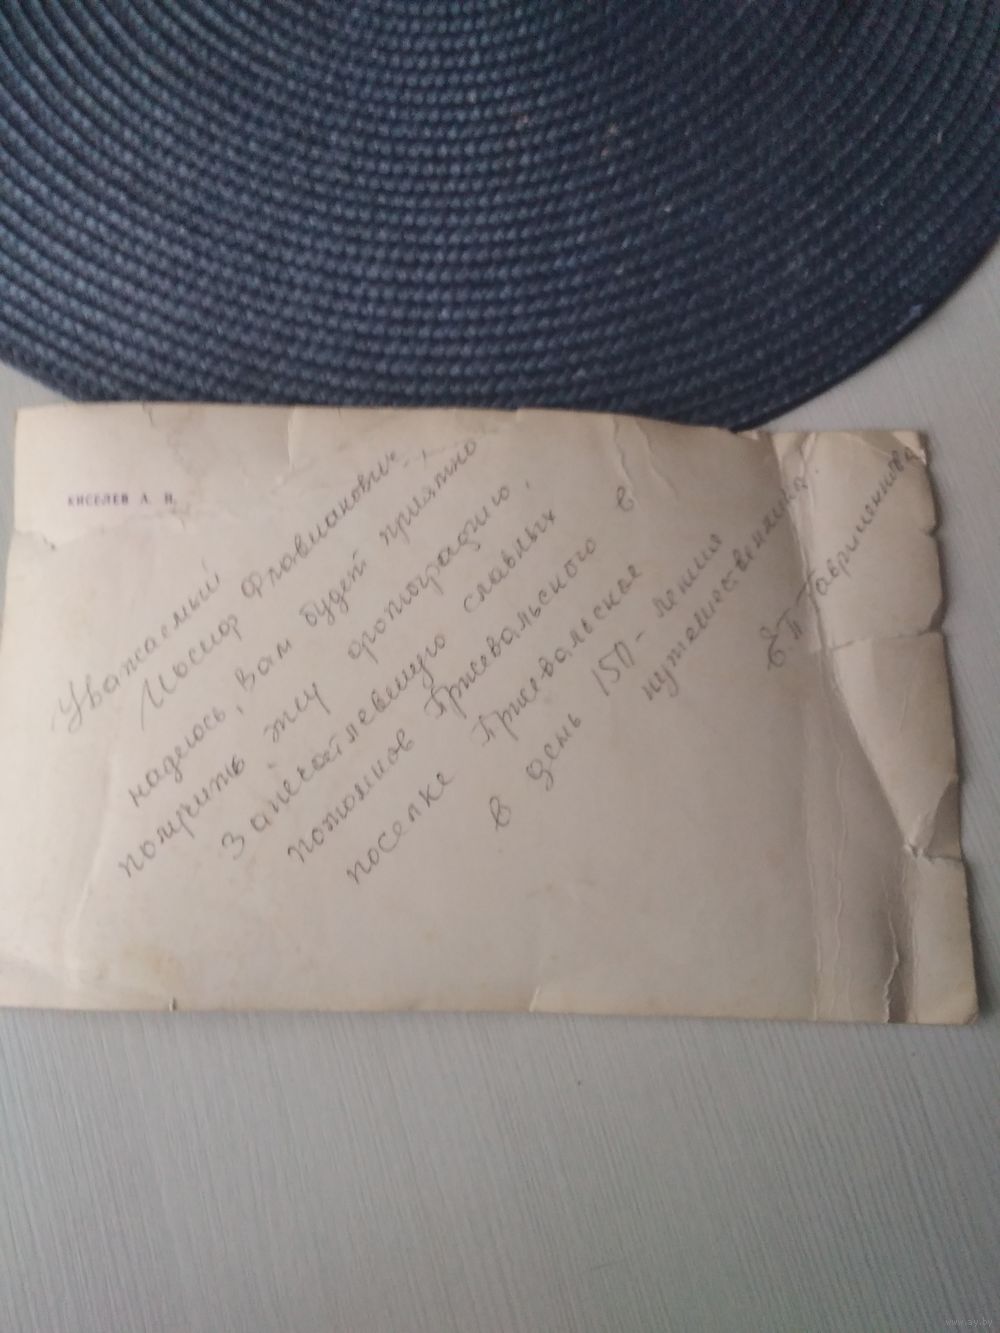 КИСЕЛЕВ А. В.
Уважаемый
Иосиф Флавианович
надеюсь, Вам будет приятно
получить эту фотографию,
запечатлевшую славных
потомков Пржевальского в
поселке Пржевальское
в день 150-летия
путешественника
Е.П. Гавриленкова
www.ay.by